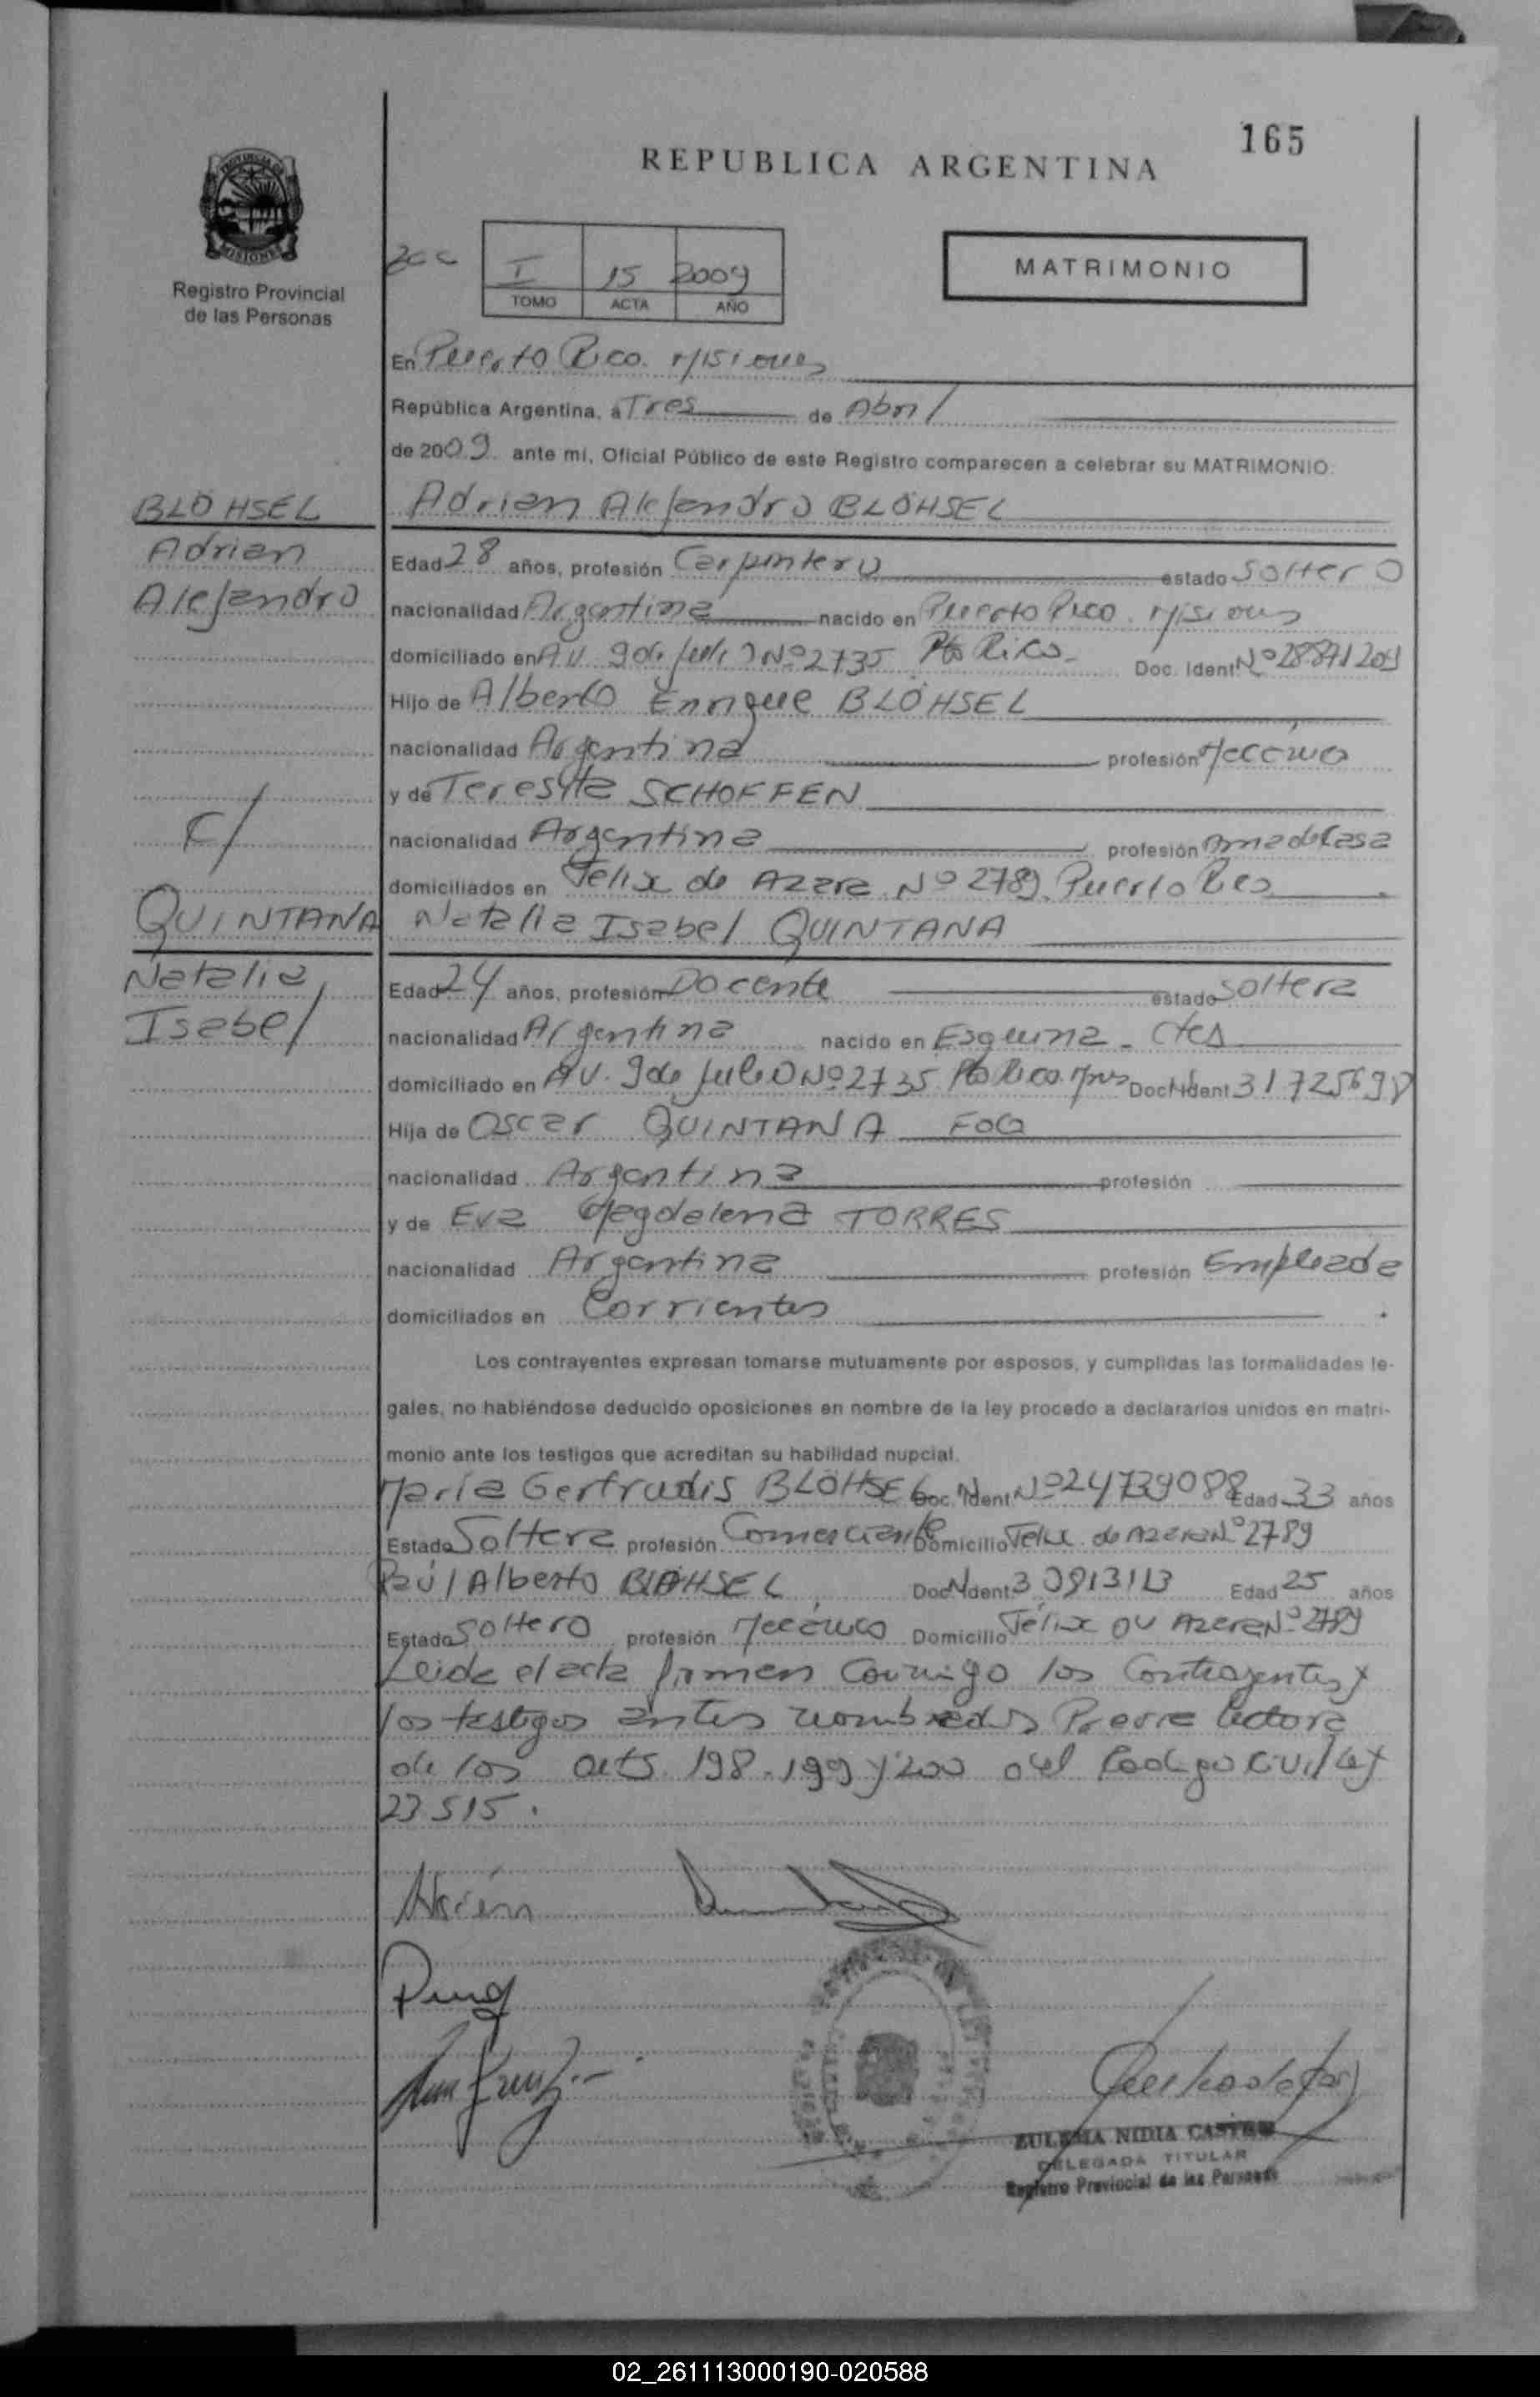 165
REPUBLICA ARGENTINA
PROVINCIA DE
MISIONES
Registro Provincial
de las Personas
I 15 2009
TOMO ACTA AÑO
MATRIMONIO
En Puerto Rico. Misiones
República Argentina, a Tres de Abril
de 2009 ante mi, Oficial Público de este Registro comparecen a celebrar su MATRIMONIO
BLÖHSEL Adrian Alejandro BLÖHSEL
Adrian Edad 28 años, profesión Carpintero estado Soltero
Alejandro nacionalidad Argentina nacido en Puerto Rico. Misiones
domiciliado en AV. 9 de Julio Nº 2735 Pto Rico Doc. Ident Nº 28871209
Hijo de Alberto Enrique BLÖHSEL
nacionalidad Argentina profesión Mecánico
y de Teresita SCHOFFEN
C/ nacionalidad Argentina profesión Ama de Casa
domiciliados en Felix de Azara Nº 2789 Puerto Rico
QUINTANA Natalia Isabel QUINTANA
Natalia Edad 24 años, profesión Docente estado Soltera
Isabel nacionalidad Argentina nacido en Esquina - Ctes
domiciliado en AV. 9 de Julio Nº 2735 Pto Rico. Mnes Doc. Ident 31725698
Hija de Oscar QUINTANA
nacionalidad Argentina profesión
y de Eva Magdalena TORRES
nacionalidad Argentina profesión Empleada
domiciliados en Corrientes
Los contrayentes expresan tomarse mutuamente por esposos, y cumplidas las formalidades le-
gales, no habiéndose deducido oposiciones en nombre de la ley procedo a declararlos unidos en matri-
monio ante los testigos que acreditan su habilidad nupcial.
María Gertrudis BLÖHSEL Doc. Ident Nº 24739088 Edad 33 años
Estado Soltera profesión Comerciante Domicilio Felix de Azara Nº 2789
Raúl Alberto BLÖHSEL Doc. Ident Edad 25 años
Estado Soltero profesión Mecánico Domicilio Félix de Azara Nº 2789
Leida el acta firman conmigo los Contrayentes y
los testigos antes nombrados Previa lectora
de los arts. 198.199 y 200 del Codigo Civil Ley
23515.
Adrián
ZULEMA NIDIA
DELEGADA TITULAR
Registro Provincial de las Personas
02_261113000190-020588